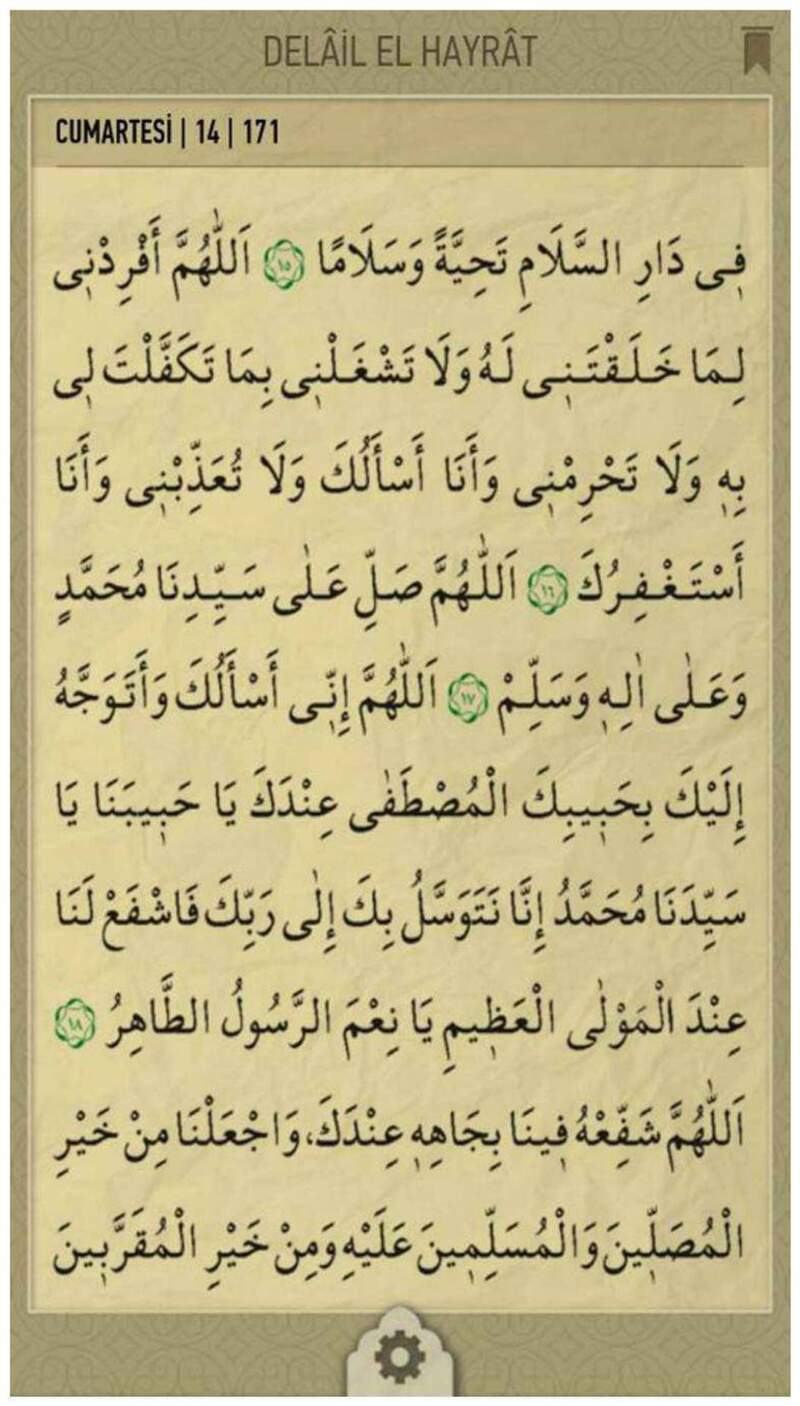 DELÂİL EL HAYRÂT
CUMARTESİ | 14 | 171
فٖى دَارِ السَّلَامِ تَحِيَّةً وَسَلَامًا ﴿١٥﴾ اَللّٰهُمَّ أَفْرِدْنٖى
لِمَا خَلَقْتَنٖى لَهُ وَلَا تَشْغَلْنٖى بِمَا تَكَفَّلْتَ لٖى
بِهٖ وَلَا تَحْرِمْنٖى وَأَنَا أَسْأَلُكَ وَلَا تُعَذِّبْنٖى وَأَنَا
أَسْتَغْفِرُكَ ﴿١٦﴾ اَللّٰهُمَّ صَلِّ عَلٰى سَيِّدِنَا مُحَمَّدٍ
وَعَلٰى اٰلِهٖ وَسَلِّمْ ﴿١٧﴾ اَللّٰهُمَّ إِنّٖى أَسْأَلُكَ وَأَتَوَجَّهُ
إِلَيْكَ بِحَبٖيبِكَ الْمُصْطَفٰى عِنْدَكَ يَا حَبٖيبَنَا يَا
سَيِّدَنَا مُحَمَّدُ إِنَّا نَتَوَسَّلُ بِكَ إِلٰى رَبِّكَ فَاشْفَعْ لَنَا
عِنْدَ الْمَوْلٰى الْعَظٖيمِ يَا نِعْمَ الرَّسُولُ الطَّاهِرُ ﴿١٨﴾
اَللّٰهُمَّ شَفِّعْهُ فٖينَا بِجَاهِهٖ عِنْدَكَ، وَاجْعَلْنَا مِنْ خَيْرِ
الْمُصَلّٖينَ وَالْمُسَلِّمٖينَ عَلَيْهِ وَمِنْ خَيْرِ الْمُقَرَّبٖينَ